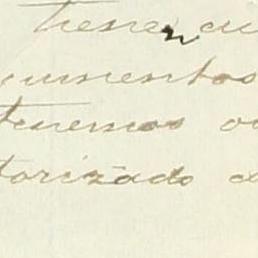 tienen cu
cumentos
tenemos o
torizado a